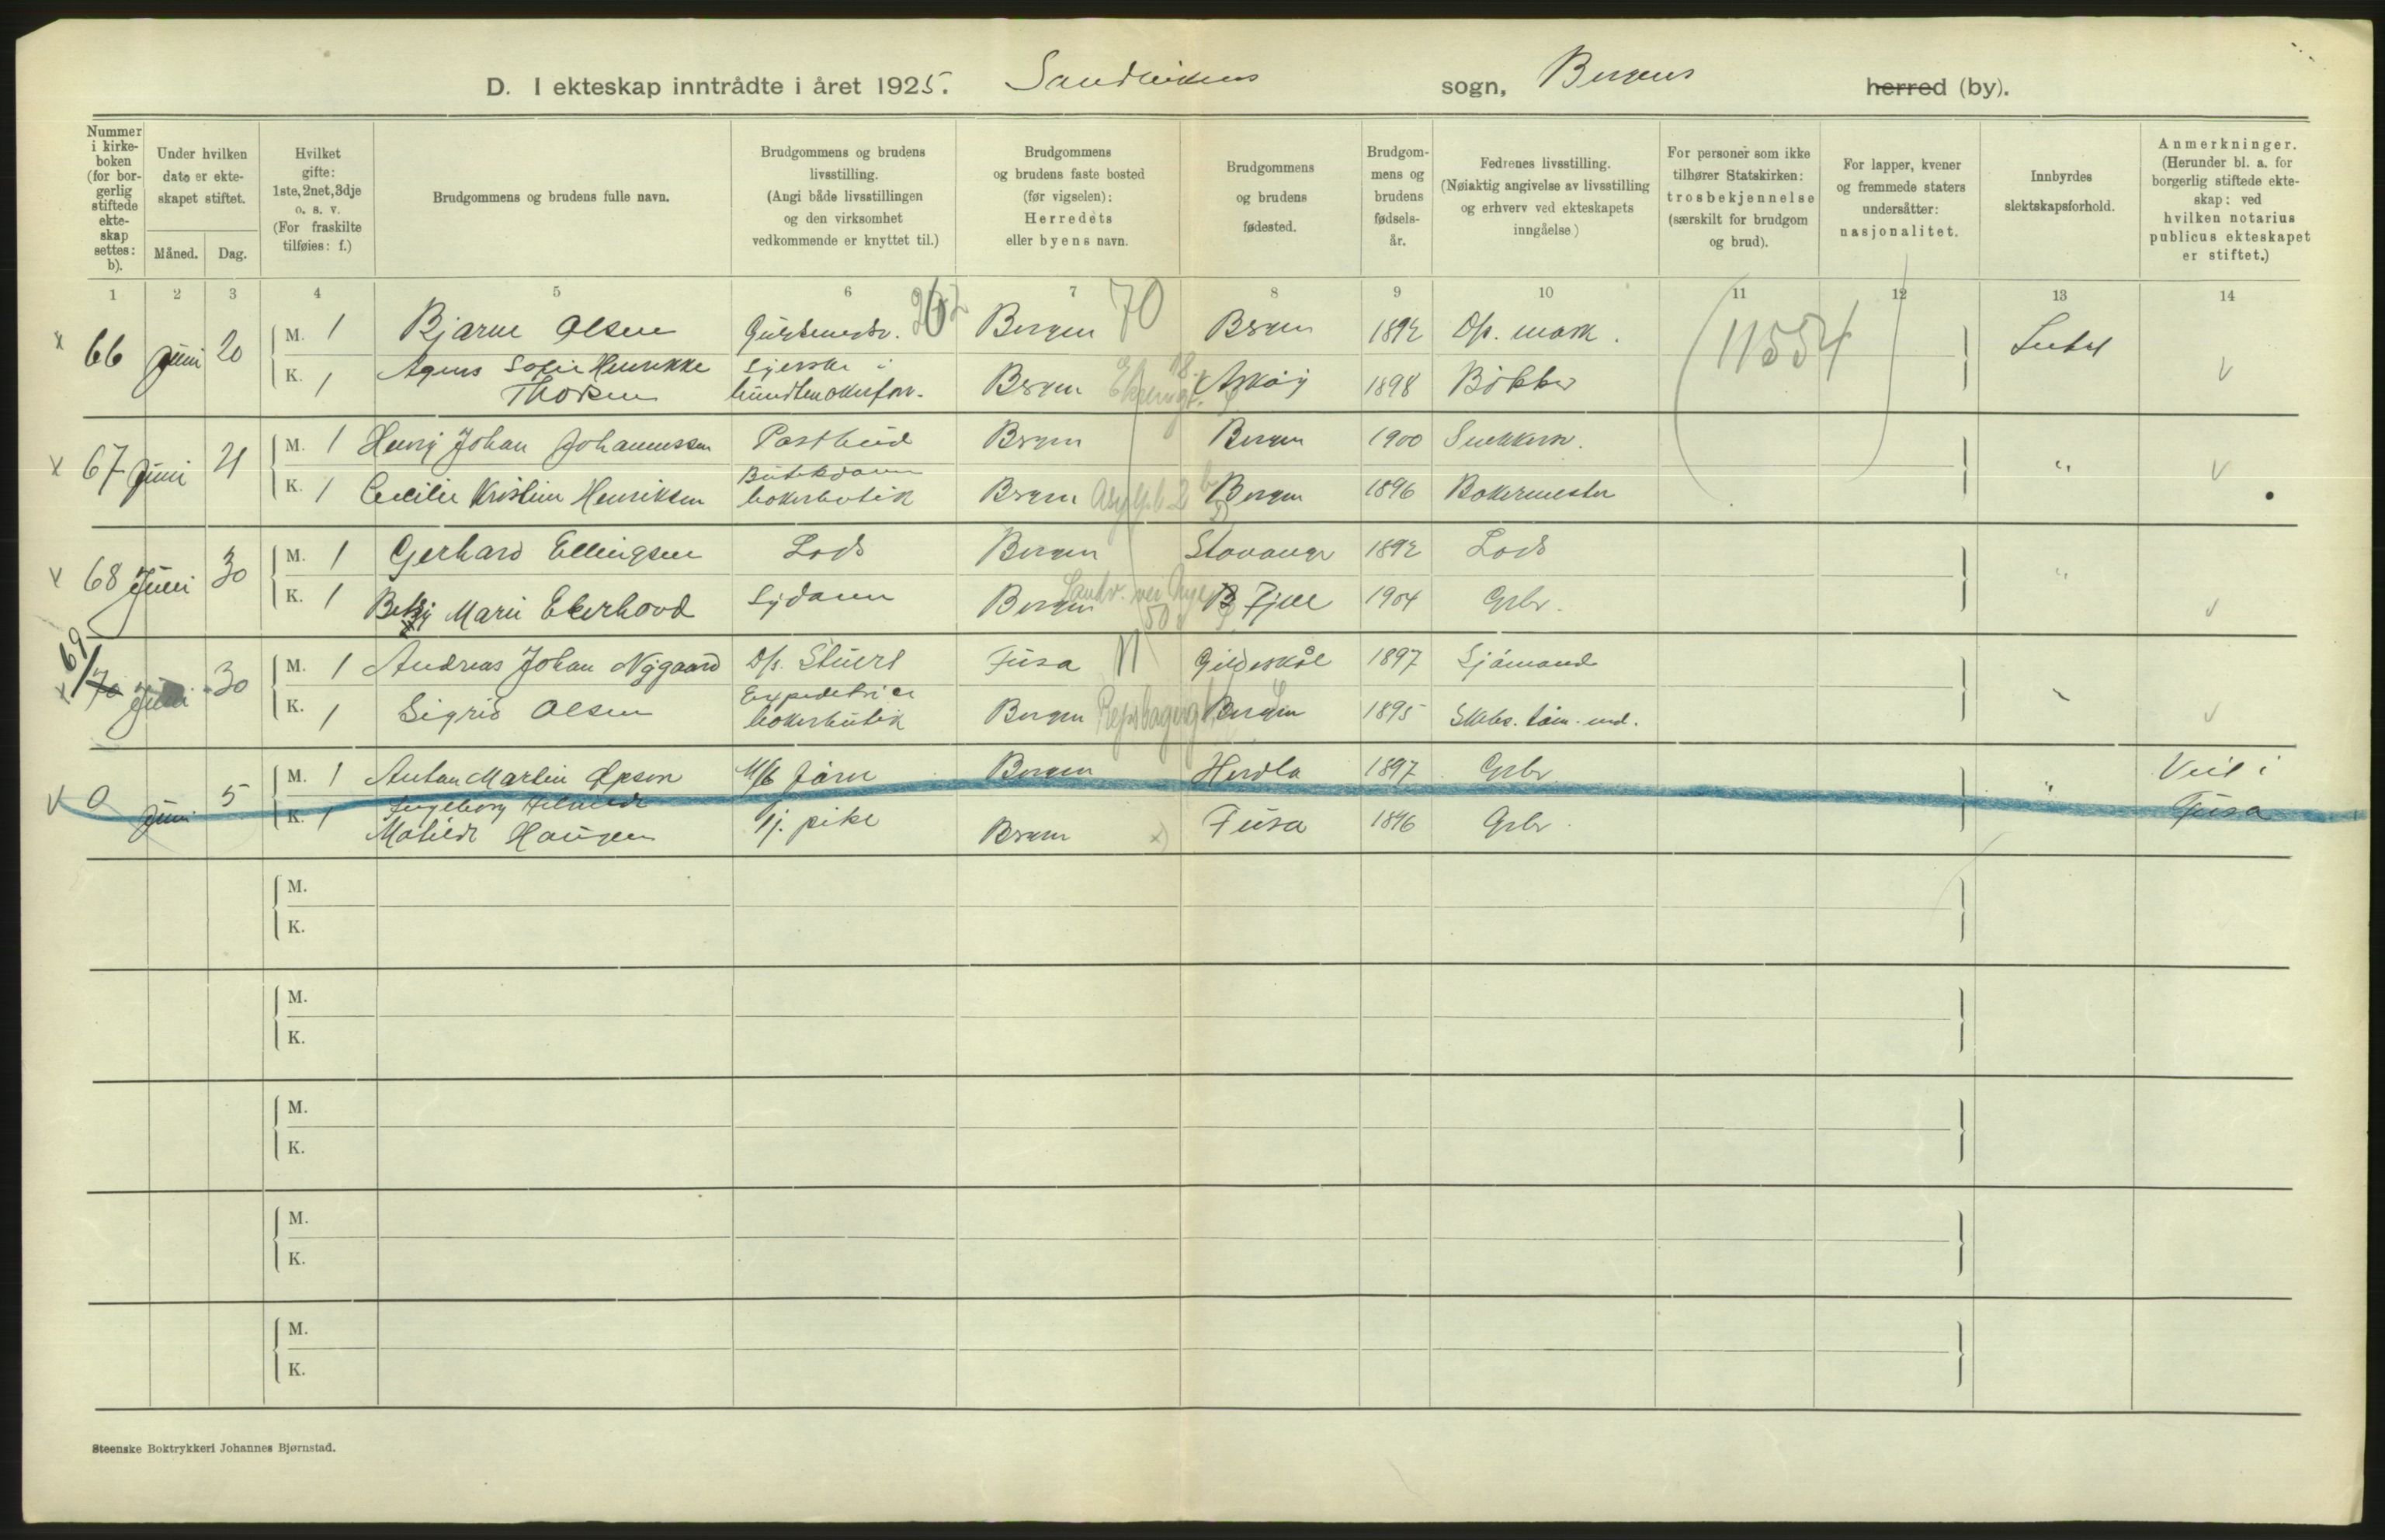 D. I ekteskap inntrådte i året 1925. Sandvikens sogn, Bergens herred (by).
Nummer i kirke-boken (for bor-gerlig stiftede ekte-skap settes: b).
Under hvilken dato er ekte-skapet stiftet.
Måned. Dag.
Hvilket gifte: 1ste, 2net, 3dje o. s. v. (For fraskilte tilføies: f.)
Brudgommens og brudens fulle navn.
Brudgommens og brudens livsstilling. (Angi både livsstillingen og den virksomhet vedkommende er knyttet til.)
Brudgommens og brudens faste bosted (før vigselen): Herredets eller byens navn.
Brudgommens og brudens fødested.
Brudgom-mens og brudens fødsels-år.
Fedrenes livsstilling. (Nøiaktig angivelse av livsstilling og erhverv ved ekteskapets inngåelse)
For personer som ikke tilhører Statskirken: trosbekjennelse (særskilt for brudgom og brud).
For lapper, kvener og fremmede staters undersåtter: nasjonalitet.
Innbyrdes slektskapsforhold.
Anmerkninger. (Herunder bl. a. for borgerlig stiftede ekte-skap: ved hvilken notarius publicus ekteskapet er stiftet.)
1 2 3 4 5 6 7 8 9 10 11 12 13 14
x 66 Juni 20 M. 1 Bjarne Olsen Gullsmedsv. Bergen 70 Bergen 1892 D/s. mask. (11554) Intet
K. 1 Agnes Sofie Henrikke Syerske i Bergen Askøy 1898 Bøkker v
Thorsen
x 67 Juni 21 M. 1 Henry Johan Johannessen Postbud Bergen Bergen 1900 Snekkersv. "
K. 1 Cecilie Kristine Henriksen Butikdame bakerbutik Bergen Bergen 1896 Bakermester v
x 68 Juni 30 M. 1 Gerhard Ellingsen Lods Bergen Stavanger 1892 Lods "
K. 1 Betsy Marie Ekerhovd Sydame Bergen Fjell 1904 Grbr. v
x 69/70 Juni 30 M. 1 Andreas Johan Nygaard D/s. Stuert Fusa N Gildeskål 1897 Sjømand
K. 1 Sigrid Olsen Expeditrice bakerbutik Bergen Bergen 1895 Skbs. tøm. md. v
0 Juni 5 M. 1 Anton Martin Bergen Herdla 1897 Grbr. " Viet i
K. 1 Ingeborg
Matilde Haugen Tj. pike Bergen x) Fusa 1896 Grbr. Fusa
M.
K.
M.
K.
M.
K.
M.
K.
M.
K.
Steenske Boktrykkeri Johannes Bjørnstad.